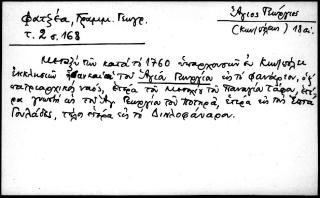 φατζέα, Γραμμ. Γεωγρ.
τ. 2 σ. 168
Άγιος Γεώργιος
(Κων/πολη) 18 αι.
Μεταξύ τῶν κατά τό 1760 ὑπαρχουσῶν ἐν Κων/πόλει
ἐκκλησιῶν ἦσαν καί αἱ τοῦ Ἁγίου Γεωργίου εἰς τό φανάριον, ὁ
πατριαρχικός ναός, ἑτέρα τοῦ Μετοχίου τοῦ Παναγίου Τάφου, ἑτέ-
ρα γνωστή ὡς τοῦ Ἁγ. Γεωργίου τοῦ ποτηρᾶ, ἑτέρα εἰς τῆς Ἑπτά
Γουλάδες, τέλος ἑτέρα εἰς τό Διπλοφάναρον.